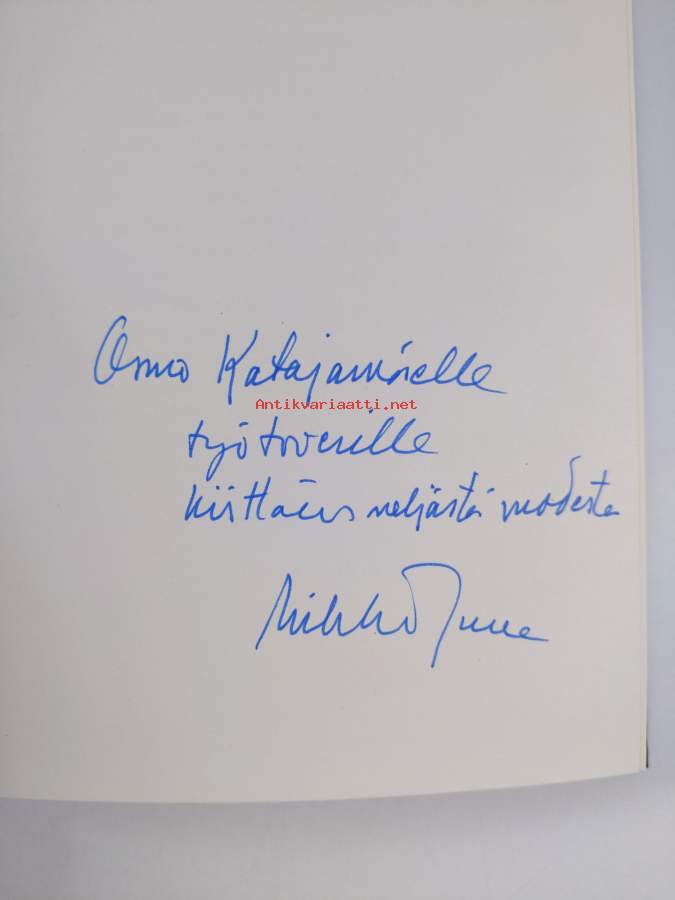 Osmo Katajamäelle
Antikvariaatti.net
työtoverille
kiittäen neljästä vuodesta
Mikko